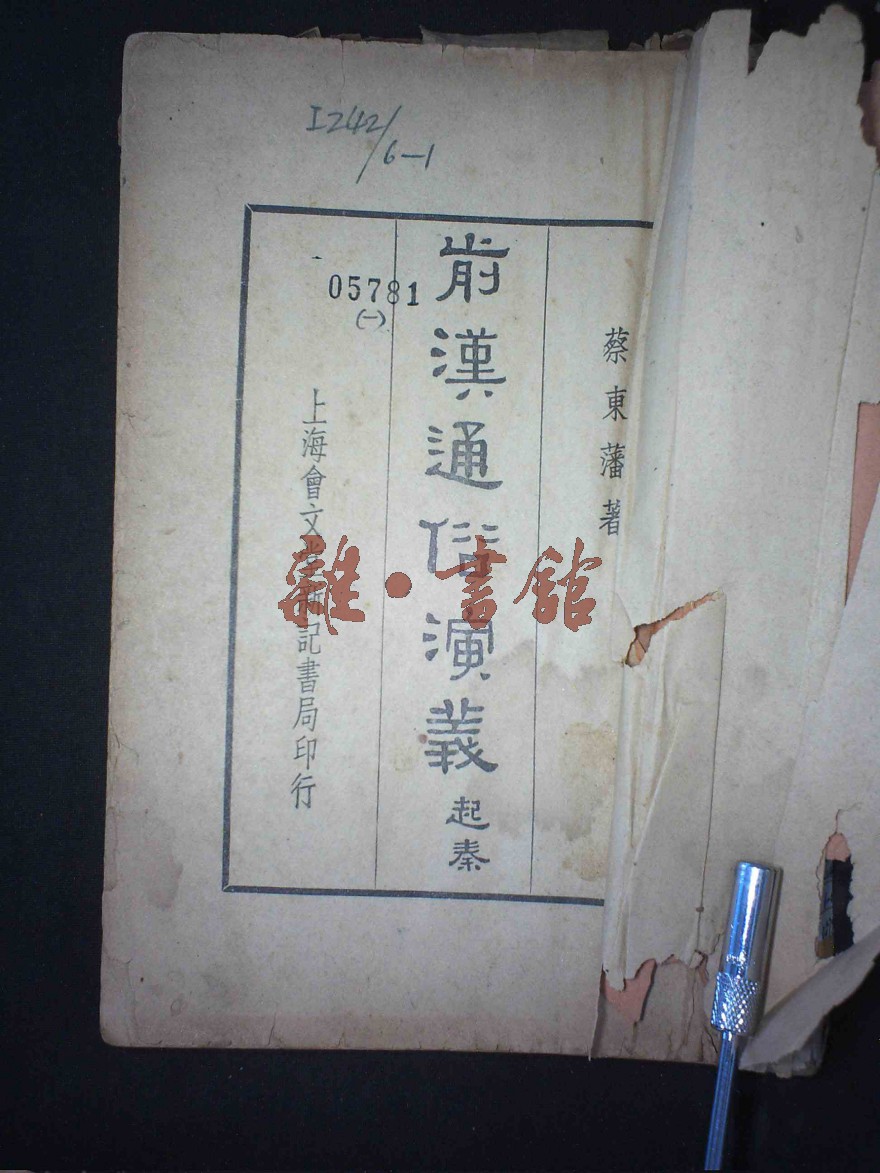 I242/6-1
蔡東藩著
前漢通俗演義 起秦
05781
(一)
上海會文堂新記書局印行
雜·書館